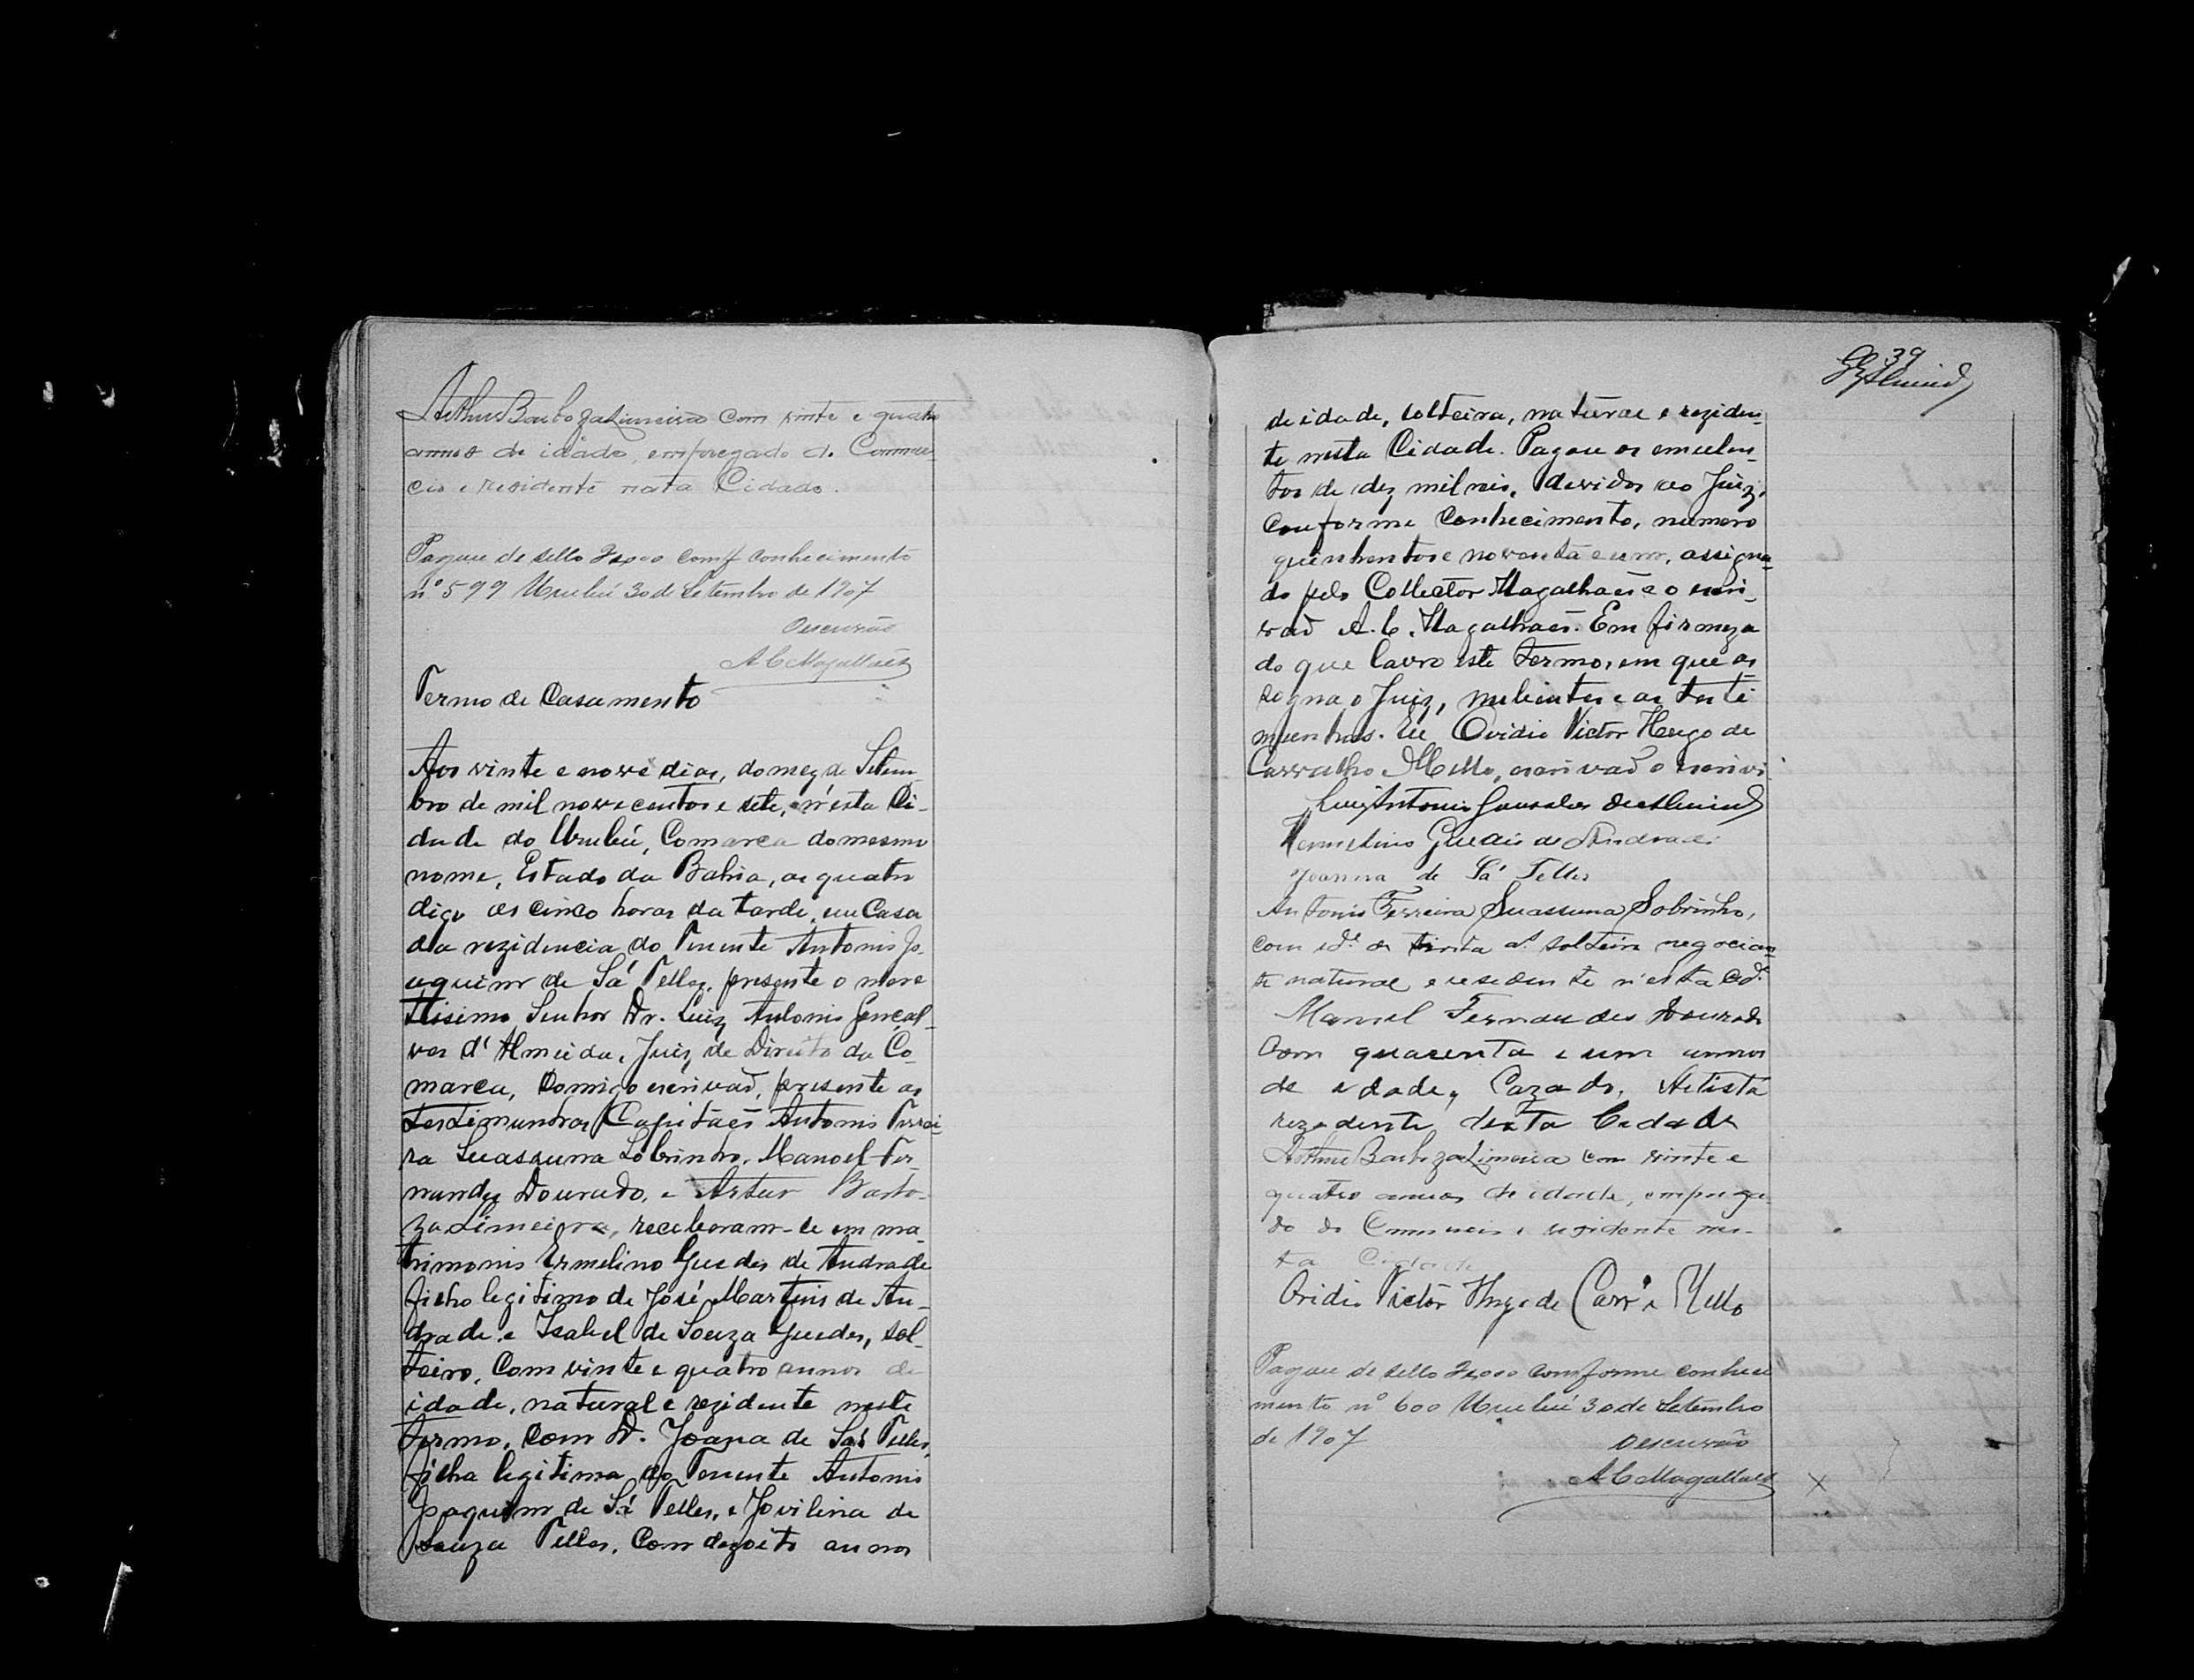 Arthur Barboza Limeira com vinte e quatro
annos de idade, empregado do Commer-
cio e residente nesta Cidade.
Pagou de sello 2$000 conf conhecimento
nº 599 Urubú 30 de Setembro de 1907
O escrivão
A C Magalhães
Termo de Casamento
Aos vinte e nove dias, do mez de Setem-
bro de mil nove centos e sete, n'esta Ci-
dade do Urubú, Comarca do mesmo
nome, Estado da Bahia, as quatro
digo as cinco horas da tarde, em Casa
da rezidencia do Tenente Antonio Jo-
aquim de Sá Telles, presente o mere
tissimo Senhor Dr. Luiz Antonio Gonçal-
ves d'Almeida, Juiz de Direito da Co
marca, comigo escrivaõ, presente as
testimunhas Capitães Antonio Ferrei-
ra Suassuna Sobrinho, Manoel Fer-
nandes Dourado, e Artur Barbo-
za Limeira, receberam-se em ma-
trimonio Ermelino Guedes de Andrade
filho legitimo de José Martins de An-
drade e Isabel de Souza Guedes, sol-
teiro, com vinte e quatro annos de
idade, natural e rezidente neste
termo, com D. Joana de Sá Telles,
filha legitima do Tenente Antonio
Joaquim de Sá Telles, e Jovilina de
Souza Telles, com dezoito annos
39
de idade, solteira, natural e reziden-
te nesta Cidade. Pagou os emolumen-
tos de dez mil reis, devidos ao Juiz,
conforme conhecimento, numero
quinhentos e noventa e um, assigna-
do pelo Collector Magalhães e o escri-
vaõ A. C. Magalhães. Em firmeza
do que lavro este termo, em que as
signa o Juiz, nubentes e as teste
munhas. Eu Ovidio Victor Hugo de
Carvalho e Mello, escrivaõ o escrivi
Luiz Antonio Gonsalves de Almeida
Hermelino Guedes de Andrade
Joanna de Sá Telles
Antonio Ferreira Suassuna Sobrinho,
com ide de trinta as solteiro negocian-
te natural e residente n'esta cde
Manoel Fernandes Dourado
Com quarenta e um annos
de edade, Cazado, Artista
rezedente desta Cedade
Arthur Barboza Limeira com vinte e
quatro annos de idade, emprega-
do do Commercio e residente nes-
ta Cidade
Ovidio Victor Hugo de Carvº e Mello
Pagou de sello 2$000 conforme conheci
mento nº 600 Urubú 30 de Setembro
de 1907
O escrivão
A C Magalhães